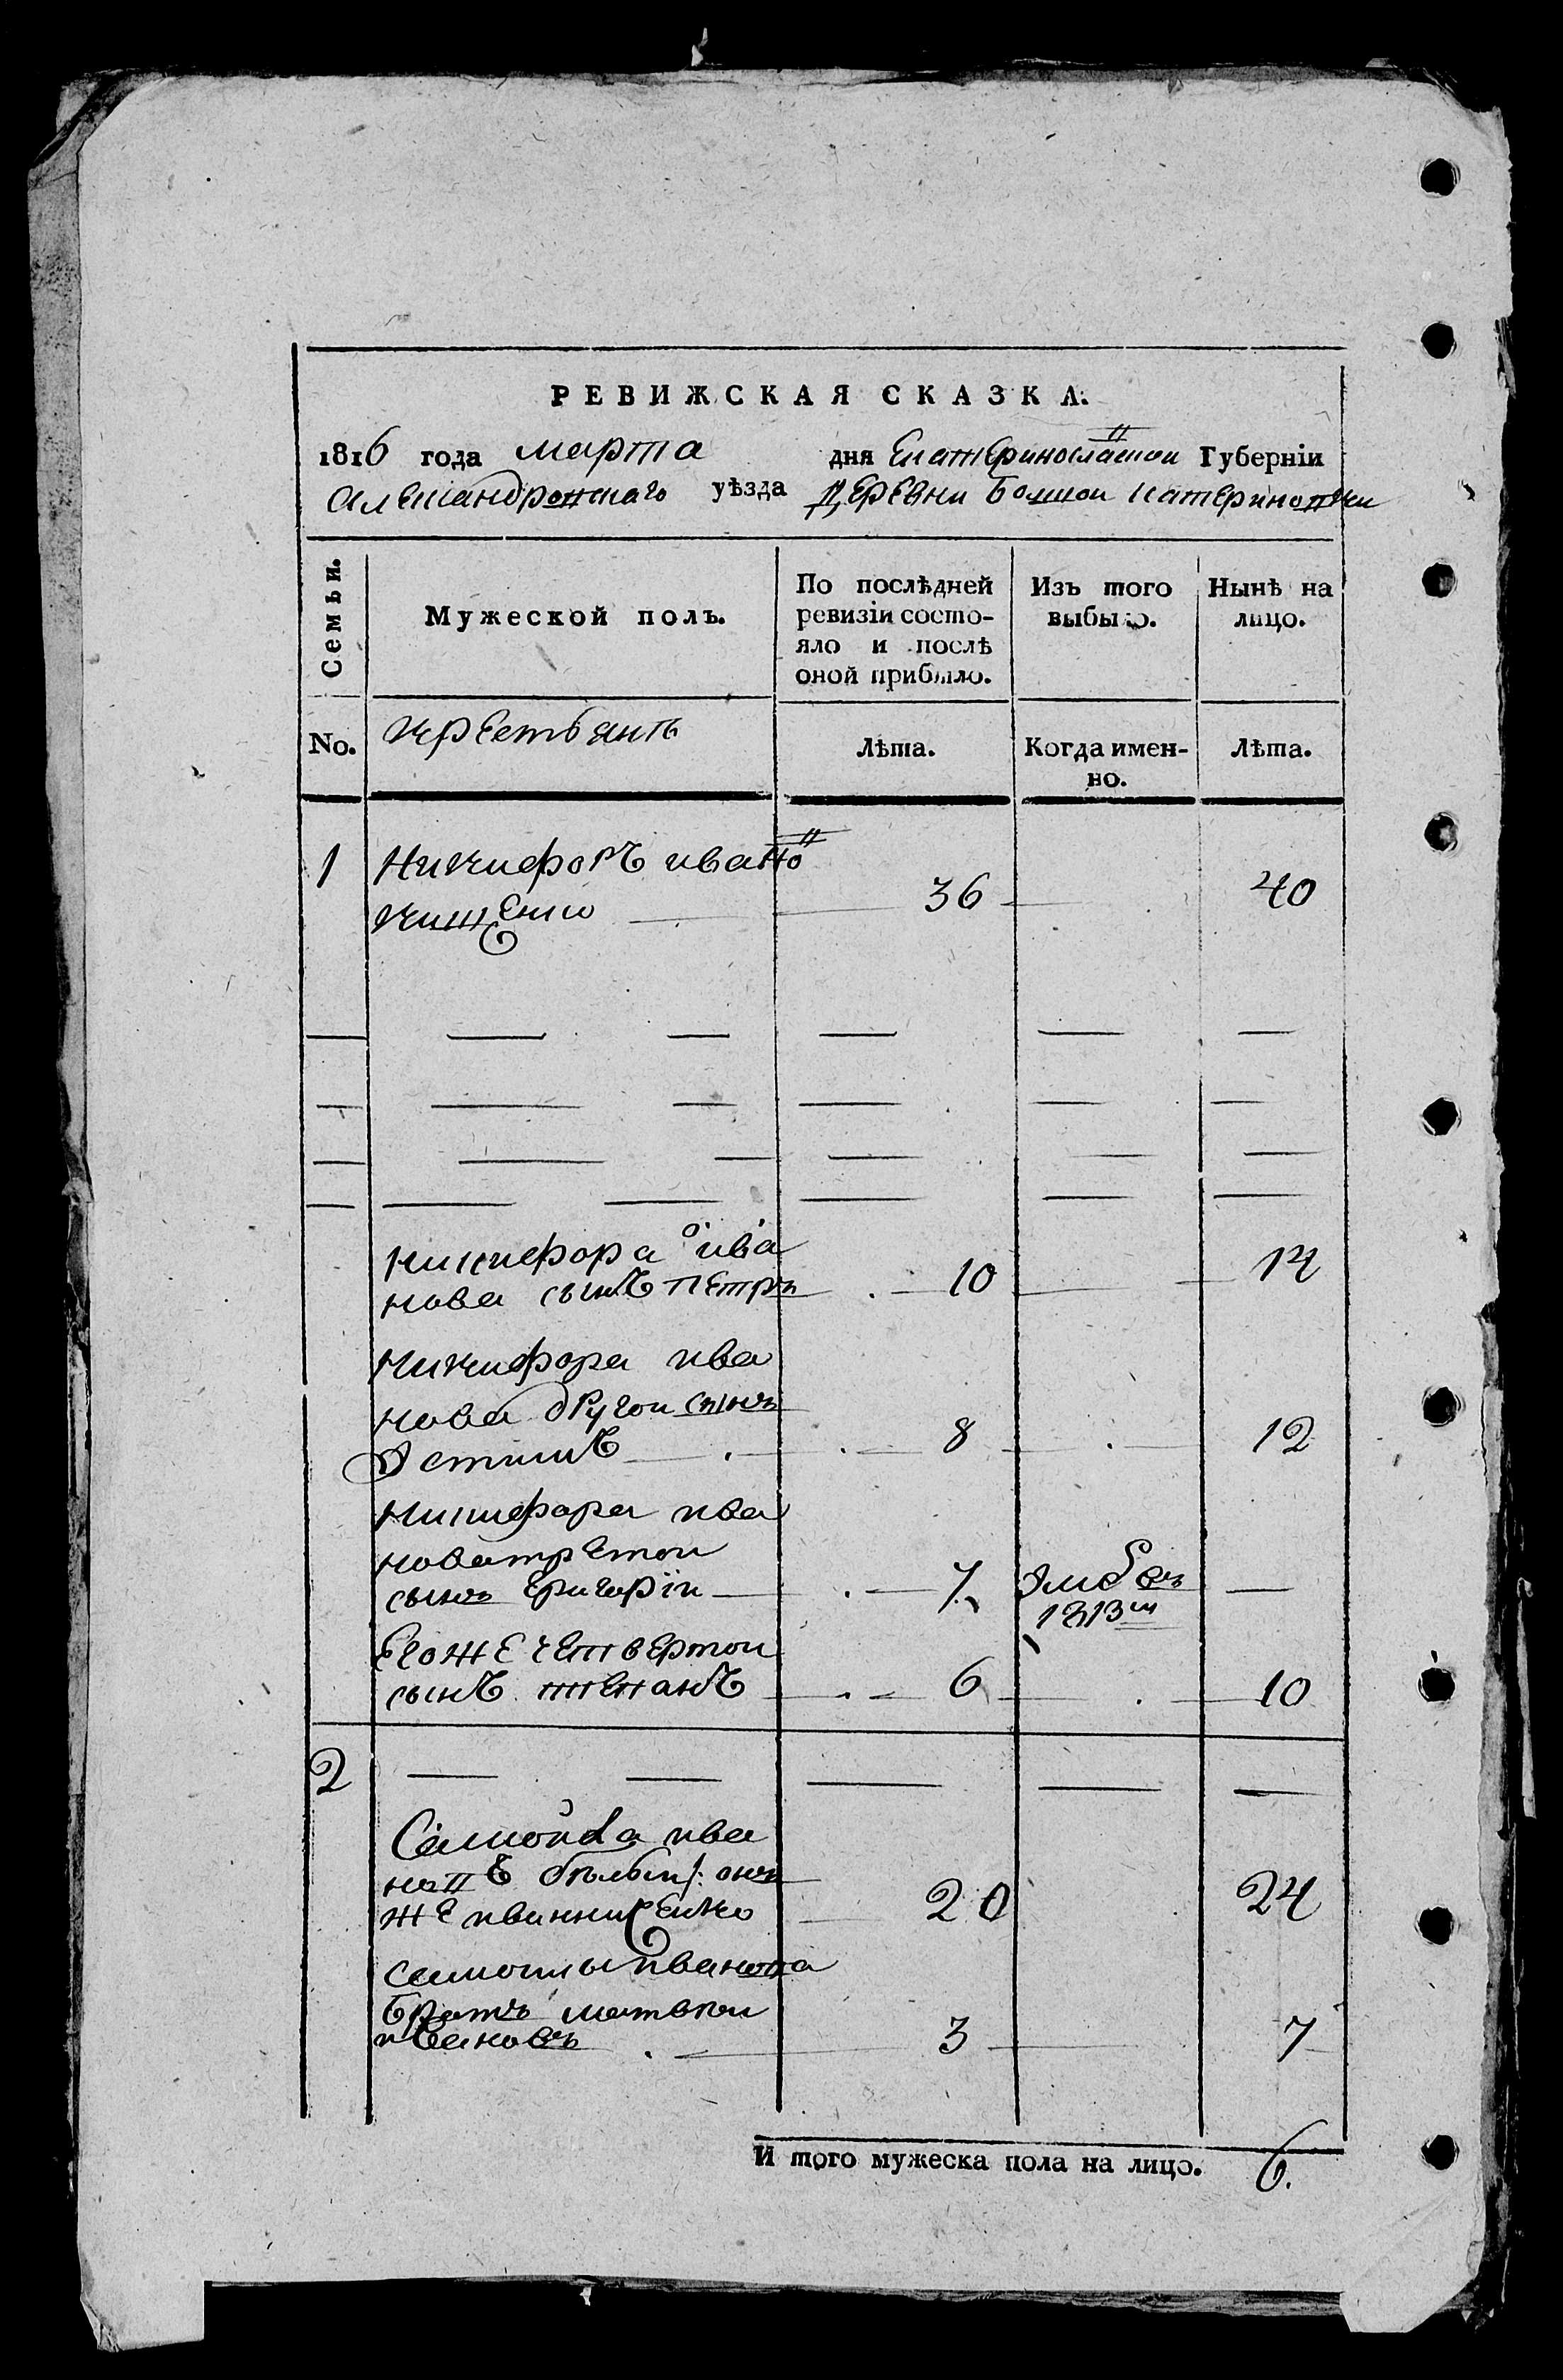 РЕВИЖСКАЯ СКАЗКА.
1816 года марта дня Екатеринославской Губерніи
Александровскаго уѣзда Деревни Болшои катериновки
Семьи.
Мужеской полъ.
По послѣдней
ревизіи состо-
яло и послѣ
оной прибыло.
Изъ того
выбыло.
Нынѣ на
лицо.
No.
крестьянъ
Лѣта.
Когда имен-
но.
Лѣта.
1 Никифоръ ивановъ
36 40
никифора ива
нова сынъ петръ 10 14
Никифора ива
нова другои сынъ
Устинъ 8 12
никифора ива
нова третои
сынъ Григорїи 7
1813
Егоже четвертои
сынъ степанъ 6 10
2
Самоила ива
же иваниченко 20 24
самоила иванова
братъ матвѣи
ивановъ 3 7
И того мужеска пола на лицо. 6.